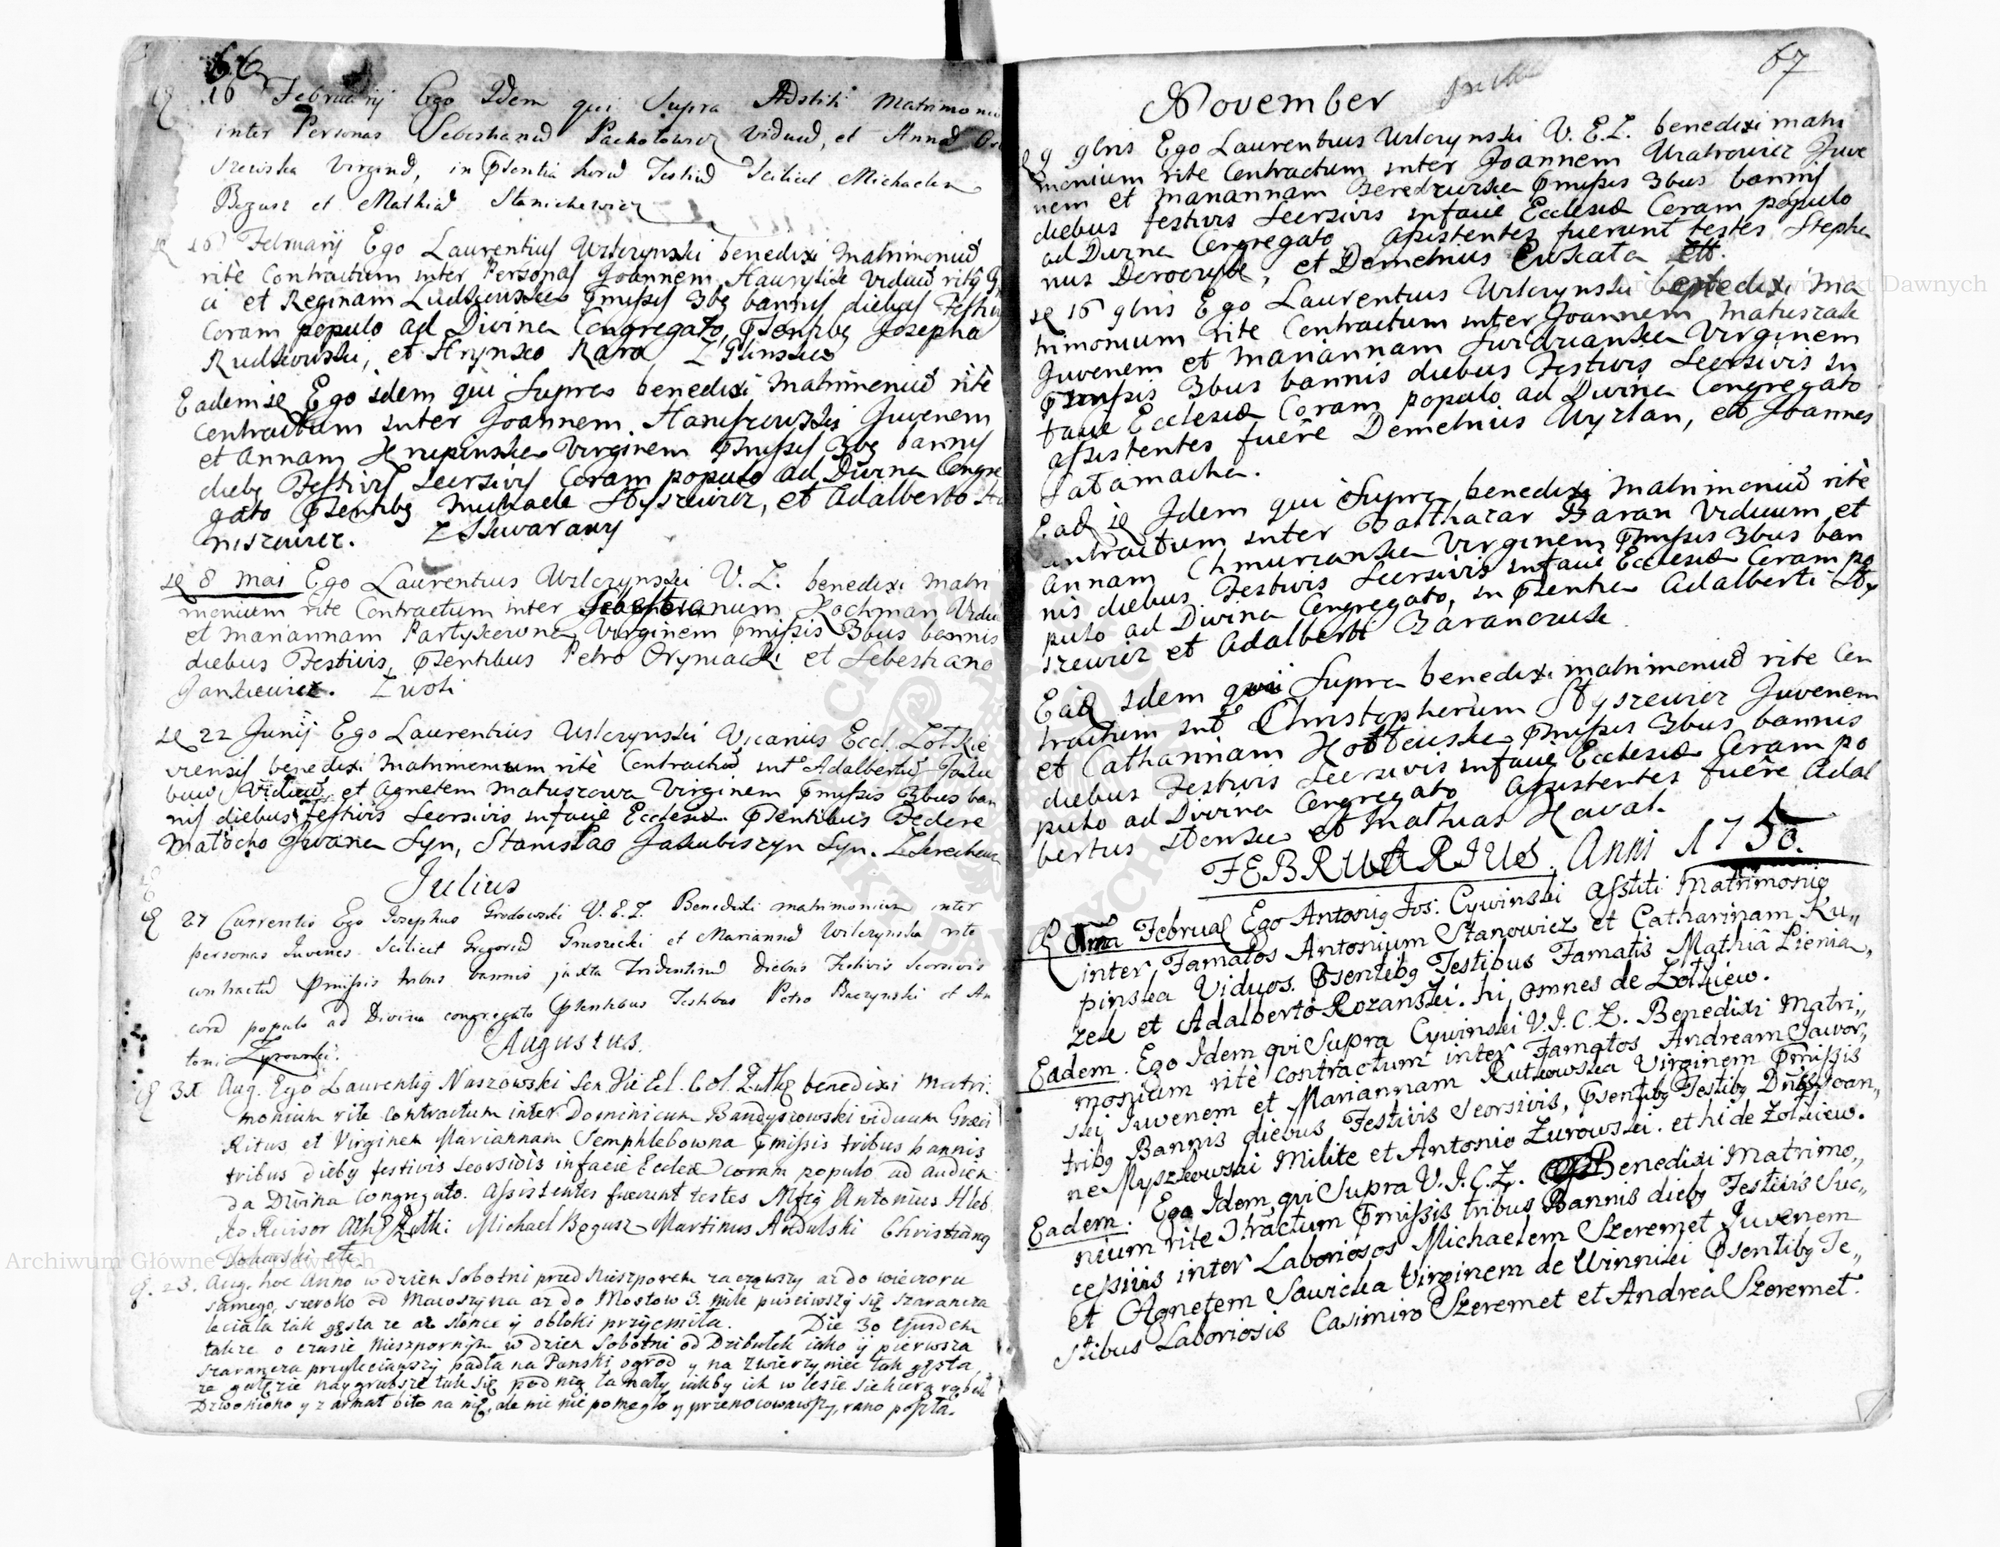 66
16 Februarij Ego Idem qui Supra Adstiti Matrimonio
inter Personas Sebestianũ Pachotowicz Viduũ, et Annã
szewska Virginẽ, in Pſentia horũ Testiũ Scilicet Michaelem
Bogusz et Mathiã Stanichewicz
16 Februarij Ego Laurentius Wilczynski benedixi Matrimoniũ
ritè Contractum inter Personas Joannem Hawrylik Viduũ ritꝰ
ci et Reginam Ludkowska pmissis 3bꝰ bannis diebus Festivis
Coram populo ad Divina Congregato, Pſentibꝰ Josepho
Rudkowski, et Hrynko Kara Z Glinska
Eadem die Ego idem qui Supra benedixi Matrimoniũ ritè
Contractum inter Joannem Hanuszowski Juvenem
et Annam Krupinska Virginem pmissis 3bꝰ bannis
diebꝰ Festivis Seorsivis Coram populo ad Divina Congre
gato Pſentibꝰ Michaele Styszewicz, et Adalberto
niszewicz. Z Skwarzawy
die 8 Mai Ego Laurentius Wilczynski V. Z. benedixi Matri
monium rite Contractum inter Sebastianum Kochman Vidu
et Mariannam Partykowna Virginem pmissis 3bus bannis
diebus Festivis, Pſentibus Petro Oryniacki et Sebestiano
Jankiewicz. Z woli
die 22 Junij Ego Laurentius Wilczynski Vicarius Eccl. Zołkie
viensis benedixi Matrimonium ritè Contractũ int Adalbertũ
Viduũ et Agnetem Matuszowa Virginem pmissis 3bus ban
nis diebus festivis Seorsivis in facie Ecclesiæ Pſentibus Federe
Matocho Iwana Syn, Stanisłao Jakubiszyn Syn.
Julius
27 Currentis Ego Josephus Grodowski V. E. Z. Benedixi matrimonium inter
personas Juvenes Scilicet Gregoriũ Gruszecki et Mariannã Wilczynska rite
contractũ pmissis tribus bannis juxta Tridentinũ diebus Festivis Seorsivis
corã populo ad Divina congregato Pſentibus Testibus Petro Baczynski et An
toni Zyrowski.
Augustus
31 Aug. Ego Laurentiꝰ Naszowski Sen Vic Ec. Col. Zutkꝰ benedixi Matri
monium rite contractum inter Dominicum Bandyszowski viduum Græci
Ritus et Virginem Mariannam Semphlebowna pmissis tribus bannis
tribus diebꝰ festivis seorsivis in facie Ecclesiæ coram populo ad audien
da Divina congregato. Assistentes fuerunt testes Mfcꝰ Antonius Hleb
Ko Revisor Michael Bogusz Martinus Andulski Christianꝰ
etc.
23. Aug. hoc Anno w dzien Sobotni przed Nieszporem zacząwszy aż do wieczora
samego, szeroko od Macoszyna az do Mostow 3. mile pusciwszy się szarancza
leciała tak gęsta ze aż słonce y obłoki przycmiła. Die 30 Ejusdem
także o czasie Nieszpornym w dzien Sobotni od Dzibulek iako y pierwsza
szarancza przyleciawszy padła na Panski ogrod y na zwierzyniec tak gęsta
ze gałęzie naygrubsze tak się pod nią łamały iakby ich w lesie siekierą rąbał
Dzwoniono y z armat bito na nię, ale nic nie pomogło y przenocowawszy, rano poszła.
67
November
die 9 9bris Ego Laurentius Wilczynski V. E. Z. benedixi matri
monium rite Contractum inter Joannem Juve
nem et Mariannam pmissis 3bus bannis
diebus festivis Seorsivis in facie Ecclesiæ Coram populo
ad Divina Congregato Assistentes fuerunt testes Stepha
nus, et Demetrius ett.
die 16 9bris Ego Laurentius Wilczynski benedixi Ma
trimonium rite Contractum inter Joannem Matuszak
Juvenem et Mariannam Virginem
pmissis 3bus bannis diebus Festivis Seorsivis in
facie Ecclesiæ Coram populo ad Divina Congregato
assistentes fuêre Demetrius Wyrlan, et Joannes
Jatamacha.
Eađ die Idem qui Supra benedixi Matrimoniũ ritè
Contractum inter Balthazar Baran Viduum et
Annam Chmurianka Virginem pmissis 3bus ban
nis diebus Festivis Seorsivis in facie Ecclesiæ Coram po
pulo ad Divina Congregato, in Pſentia Adalberti Sty
szewicz et Adalberti Baranczuk
Eađ idem qui Supra benedixi matrimoniũ rite Con
tractum int Christopherum Styszewicz Juvenem
et Catharinam pmissis 3bus bannis
diebus Festivis Seorsivis in facie Ecclesiæ Coram po
pulo ad Divina Congregato Assistentes fuêre Adal
bertus et Mathias Kawal.
FEBRUARIUS Anni 1750.
Februa Ego Antoniꝰ Jos: Cywinski Astiti Matrimoniꝰ
inter Famatos Antonium Stanowicz et Catharinam Ku„
pinska Viduos Pſentibꝰ Testibus Famatis Mathiâ Lienia„
zek et Adalberto Rozanski. hi omnes de Zołkiew.
Eadem. Ego Idem qui Supra Cywinski V. I. C. Z. Benedixi Matri„
monium ritè contractum inter Famatos Andream Jawor„
ski Juvenem et Mariannam Rutkowska Virginem pmissis
tribꝰ Bannis diebus Festivis Seorsivis, Pſentibꝰ Testibꝰ Dnis Joan„
ne Myszkowski Milite et Antonio Zurowski. et hi de Zołkiew.
Eadem. Ego Idem, qui Supra V. I. C. Z. Benedixi Matrimo„
nium rite Ctractum pmissis tribus Bannis diebꝰ Festivis Suc„
cessivis inter Laboriosos Michaelem Szeremet Juvenem
et Agnetem Sawicka Virginem de Winniki Pſentibꝰ Te„
stibus Laboriosis Casimiro Szeremet et Andrea Szeremet.
Archiwum Główne Akt Dawnych